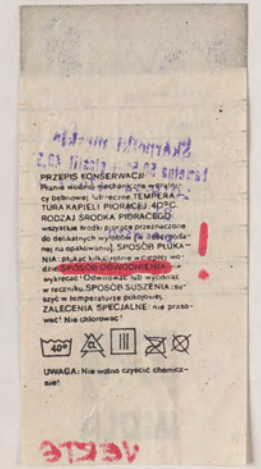 PRZEPIS KONSERWACJI
Pranie wodne, mechaniczne w pralni-
cy bębnowej lub ręczne TEMPERA-
TURA KĄPIELI PIORĄCEJ 40°C.
RODZAJ ŚRODKA PIORĄCEGO
wszystkie środki piorące przeznaczone
do delikatnych wyrobów
nej na opakowaniu). SPOSÓB PŁUKA-
NIA: płukać kilkakrotnie w ciepłej wo-
dzie. SPOSÓB ODWODNIENIA: nie
wykręcać! Odwirować lub wyciskać
w ręczniku. SPOSÓB SUSZENIA: su-
szyć w temperaturze pokojowej.
ZALECENIA SPECJALNE: nie praso-
wać! Nie chlorować!
!
40°
UWAGA: Nie wolno czyścić chemicz-
nie!